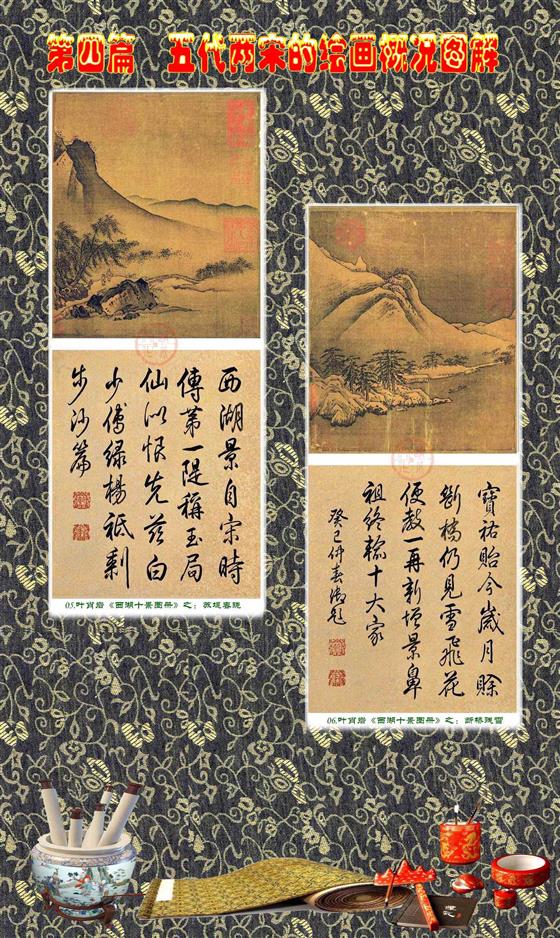 第四篇 五代两宋的绘画概况图解
西湖景自宋時
傳第一隄稱玉局
仙似恨先茲白
少傅緑楊祗剩
步沙篇
05.叶肖岩《西湖十景图册》之：苏堤春晓
寶祐貽今歲月賒
斷橋仍見雪飛花
便教一再新增景鼻
祖終輸十大家
癸巳仲春御題
06.叶肖岩《西湖十景图册》之：断桥残雪